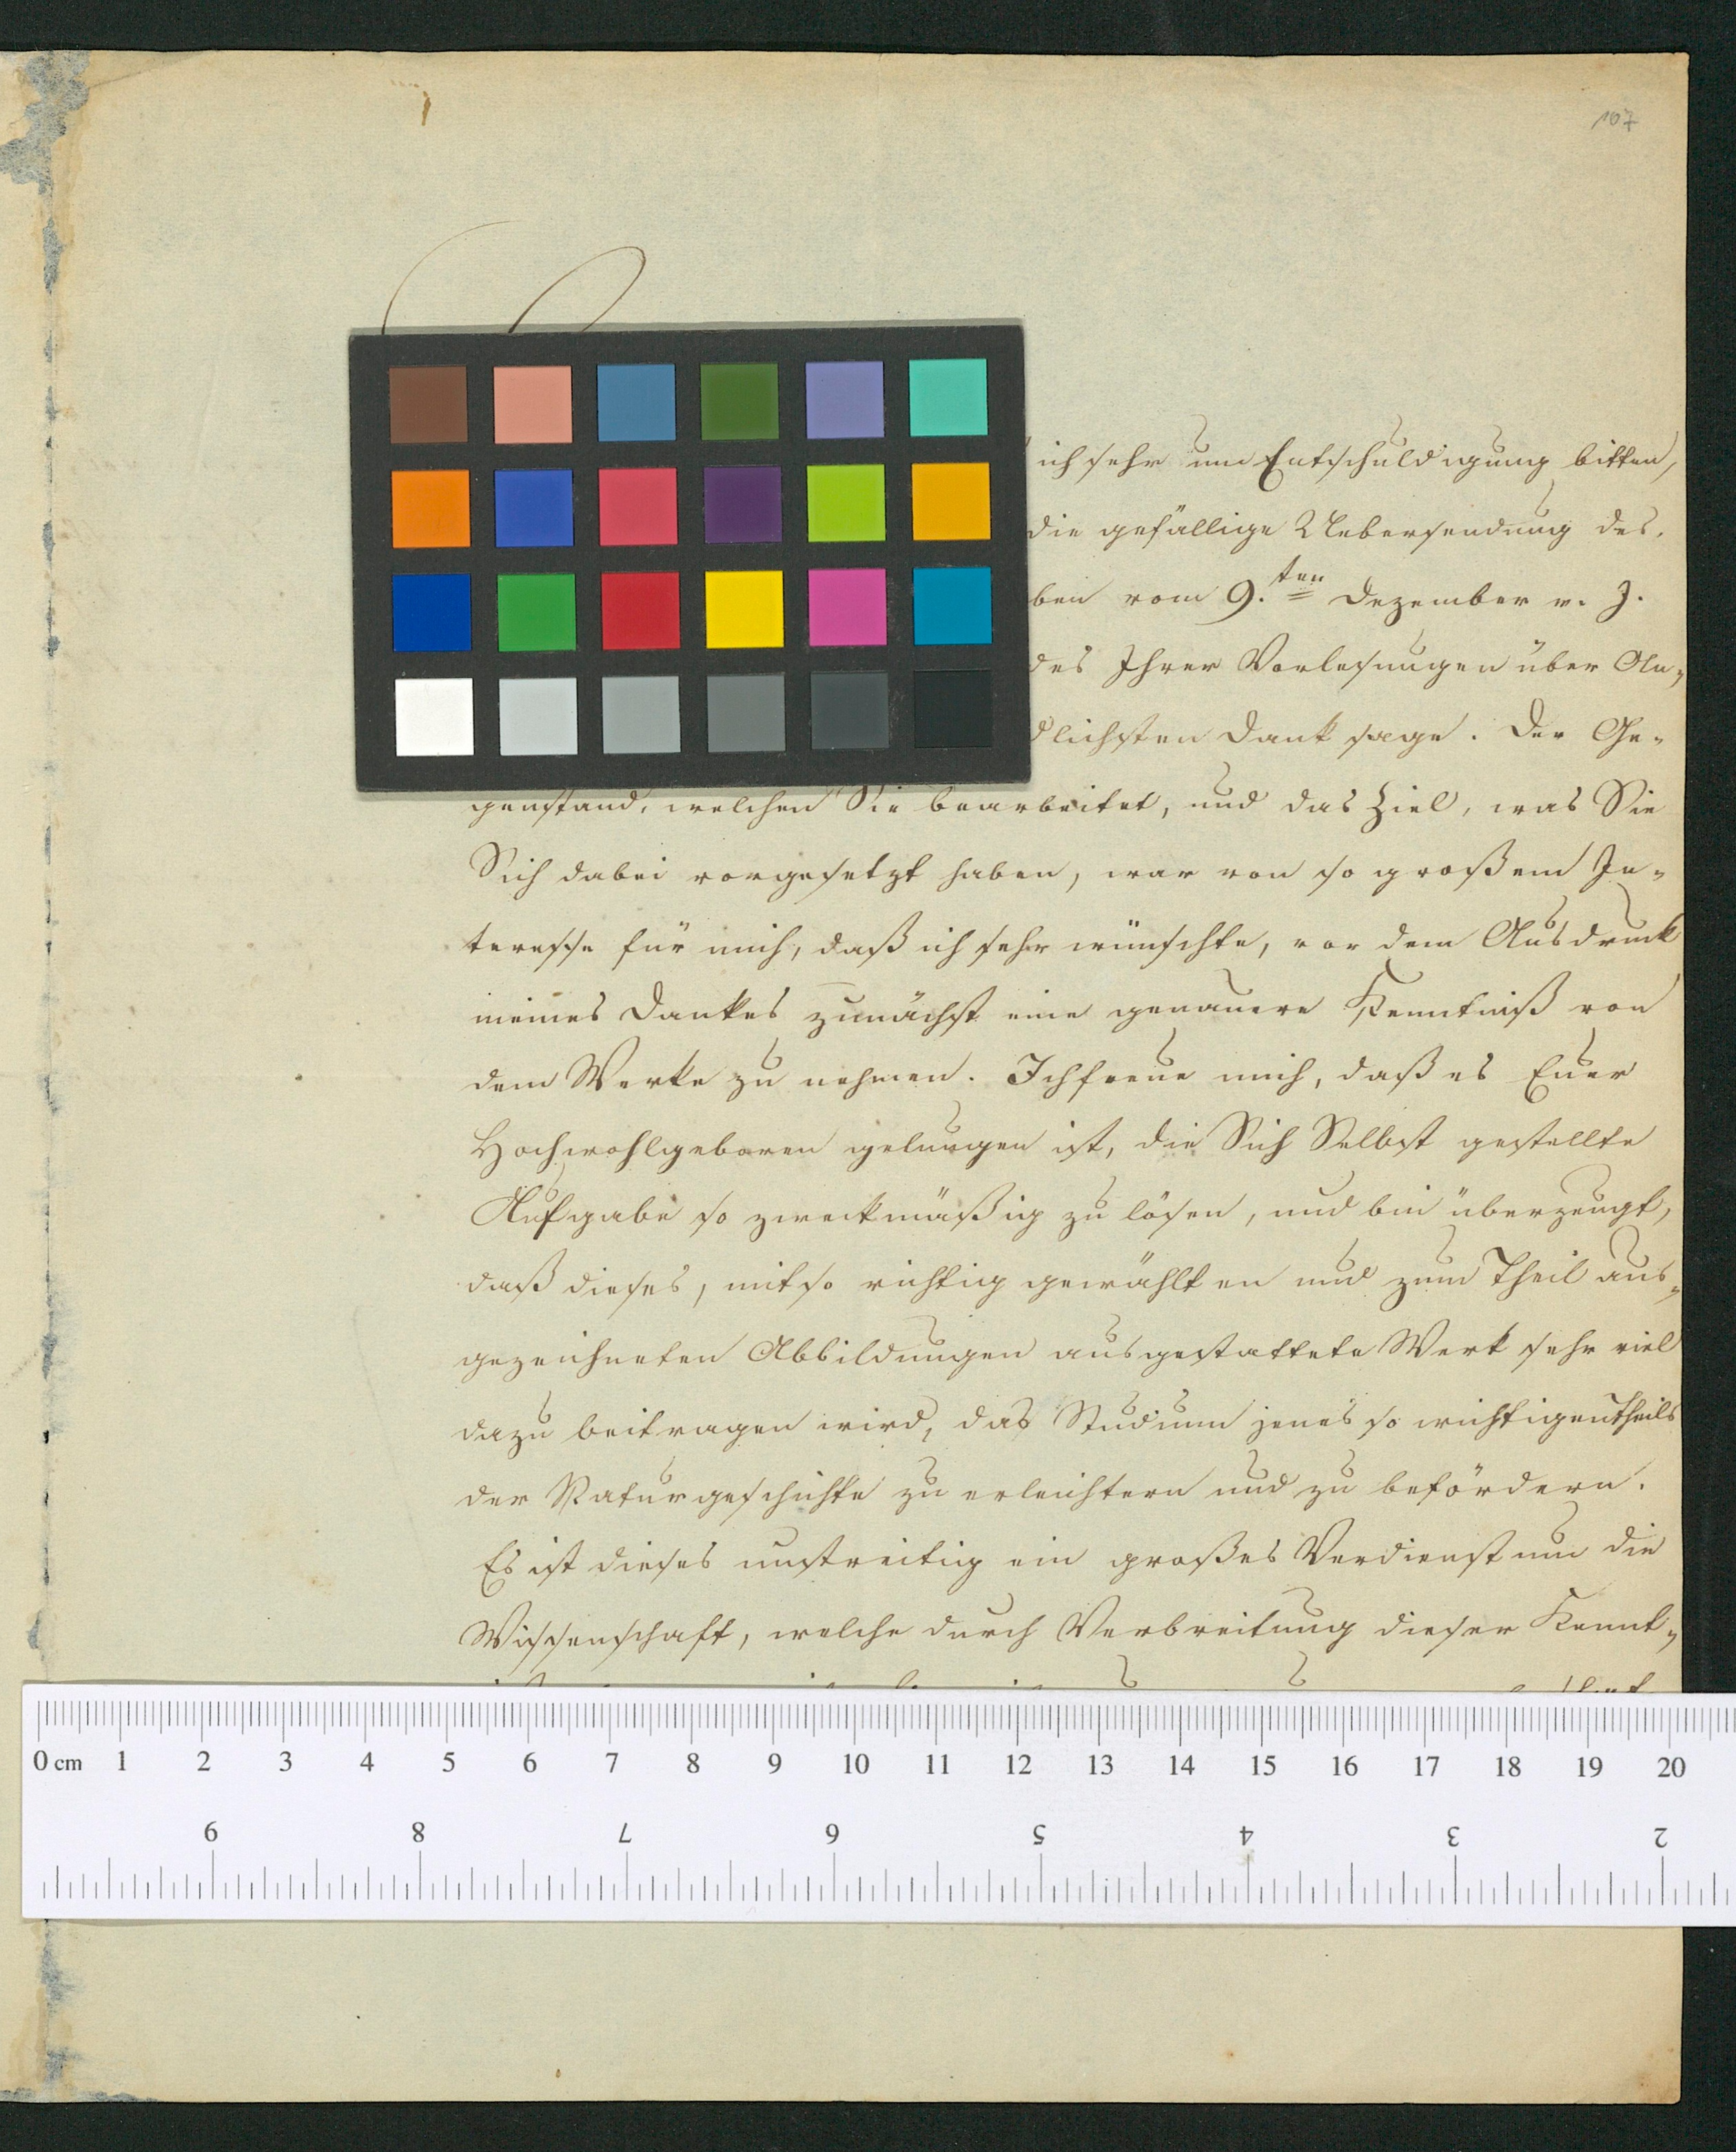 107
ich sehr um Entschuldigung bitten,
die gefällige Uebersendung des.
ben vom 9.ten Dezember v. J.
des Ihrer Vorlesungen über An-
dlichsten Dank sage. Der Ge-
genstand, welchen Sie bearbeitet, und das Ziel, was Sie
Sich dabei vorgesetzt haben, war von so großem In-
teresse für mich, daß ich sehr wünschte, vor dem Ausdruck
meines Dankes zunächst eine genauere Kenntniß von
dem Werke zu nehmen. Ich freue mich, daß es Euer
Hochwohlgeboren gelungen ist, die Sich Selbst gestellte
Aufgabe so zweckmäßig zu lösen, und bin überzeugt,
daß dieses, mit so richtig gewählten und zum Theil aus-
gezeichneten Abbildungen ausgestattete Werk sehr viel
dazu beitragen wird, das Studium jenes so wichtigen Theils
der Naturgeschichte zu erleichtern und zu befördern.
Es ist dieses unstreitig ein großes Verdienst um die
Wissenschaft, welche durch Verbreitung dieser Kennt-
0 cm 1 2 3 4 5 6 7 8 9 10 11 12 13 14 15 16 17 18 19 20
9 8 7 6 5 4 3 2